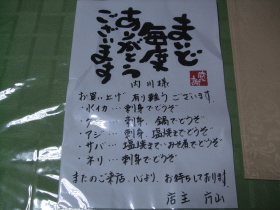 まいど
毎度
ありがとう
ございます
内川様
お買い上げ 有り難うございます
・水イカ…刺身でどうぞ
刺身、鍋でどうぞ
・アジ…刺身、塩焼きでどうぞ
・サバ…塩焼き、みそ煮でどうぞ
・ネリ…刺身でどうぞ
またのご来店、心より、お待ちしております
店主 片山